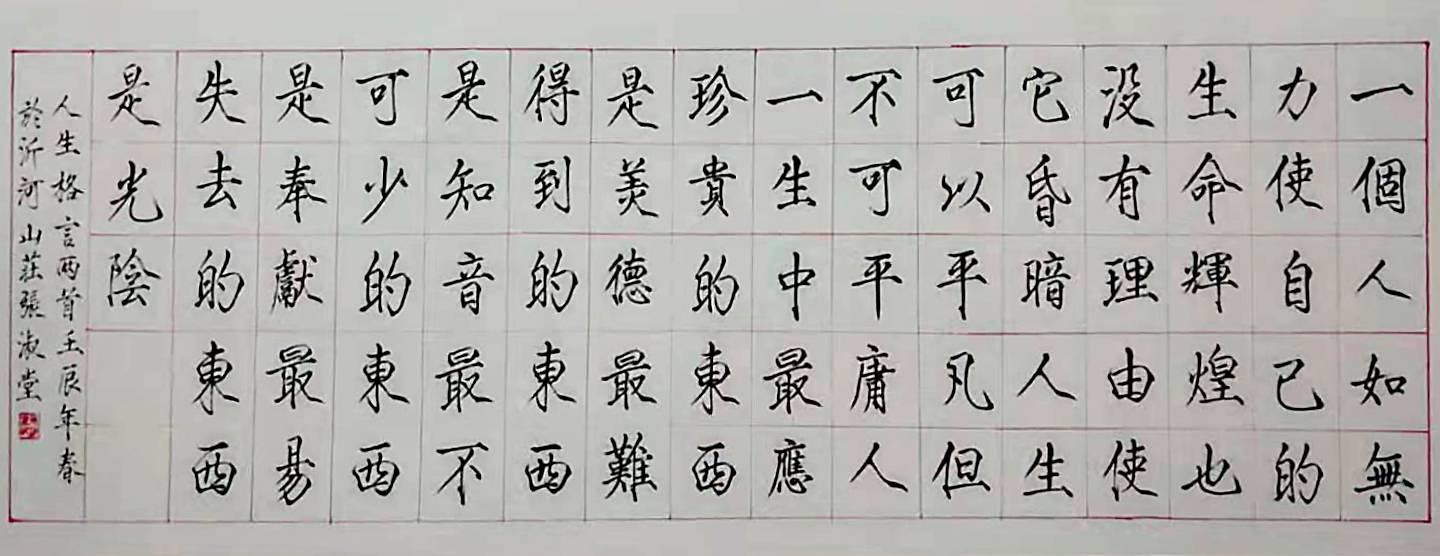 一個人如無
力使自己的
生命輝煌也
没有理由使
它昏暗人生
可以平凡但
不可平庸人
一生中最應
珍貴的東西
是美德最難
得到的東西
是知音最不
可少的東西
是奉獻最易
失去的東西
是光陰
人生格言两首壬辰年春
於沂河山莊張淑堂